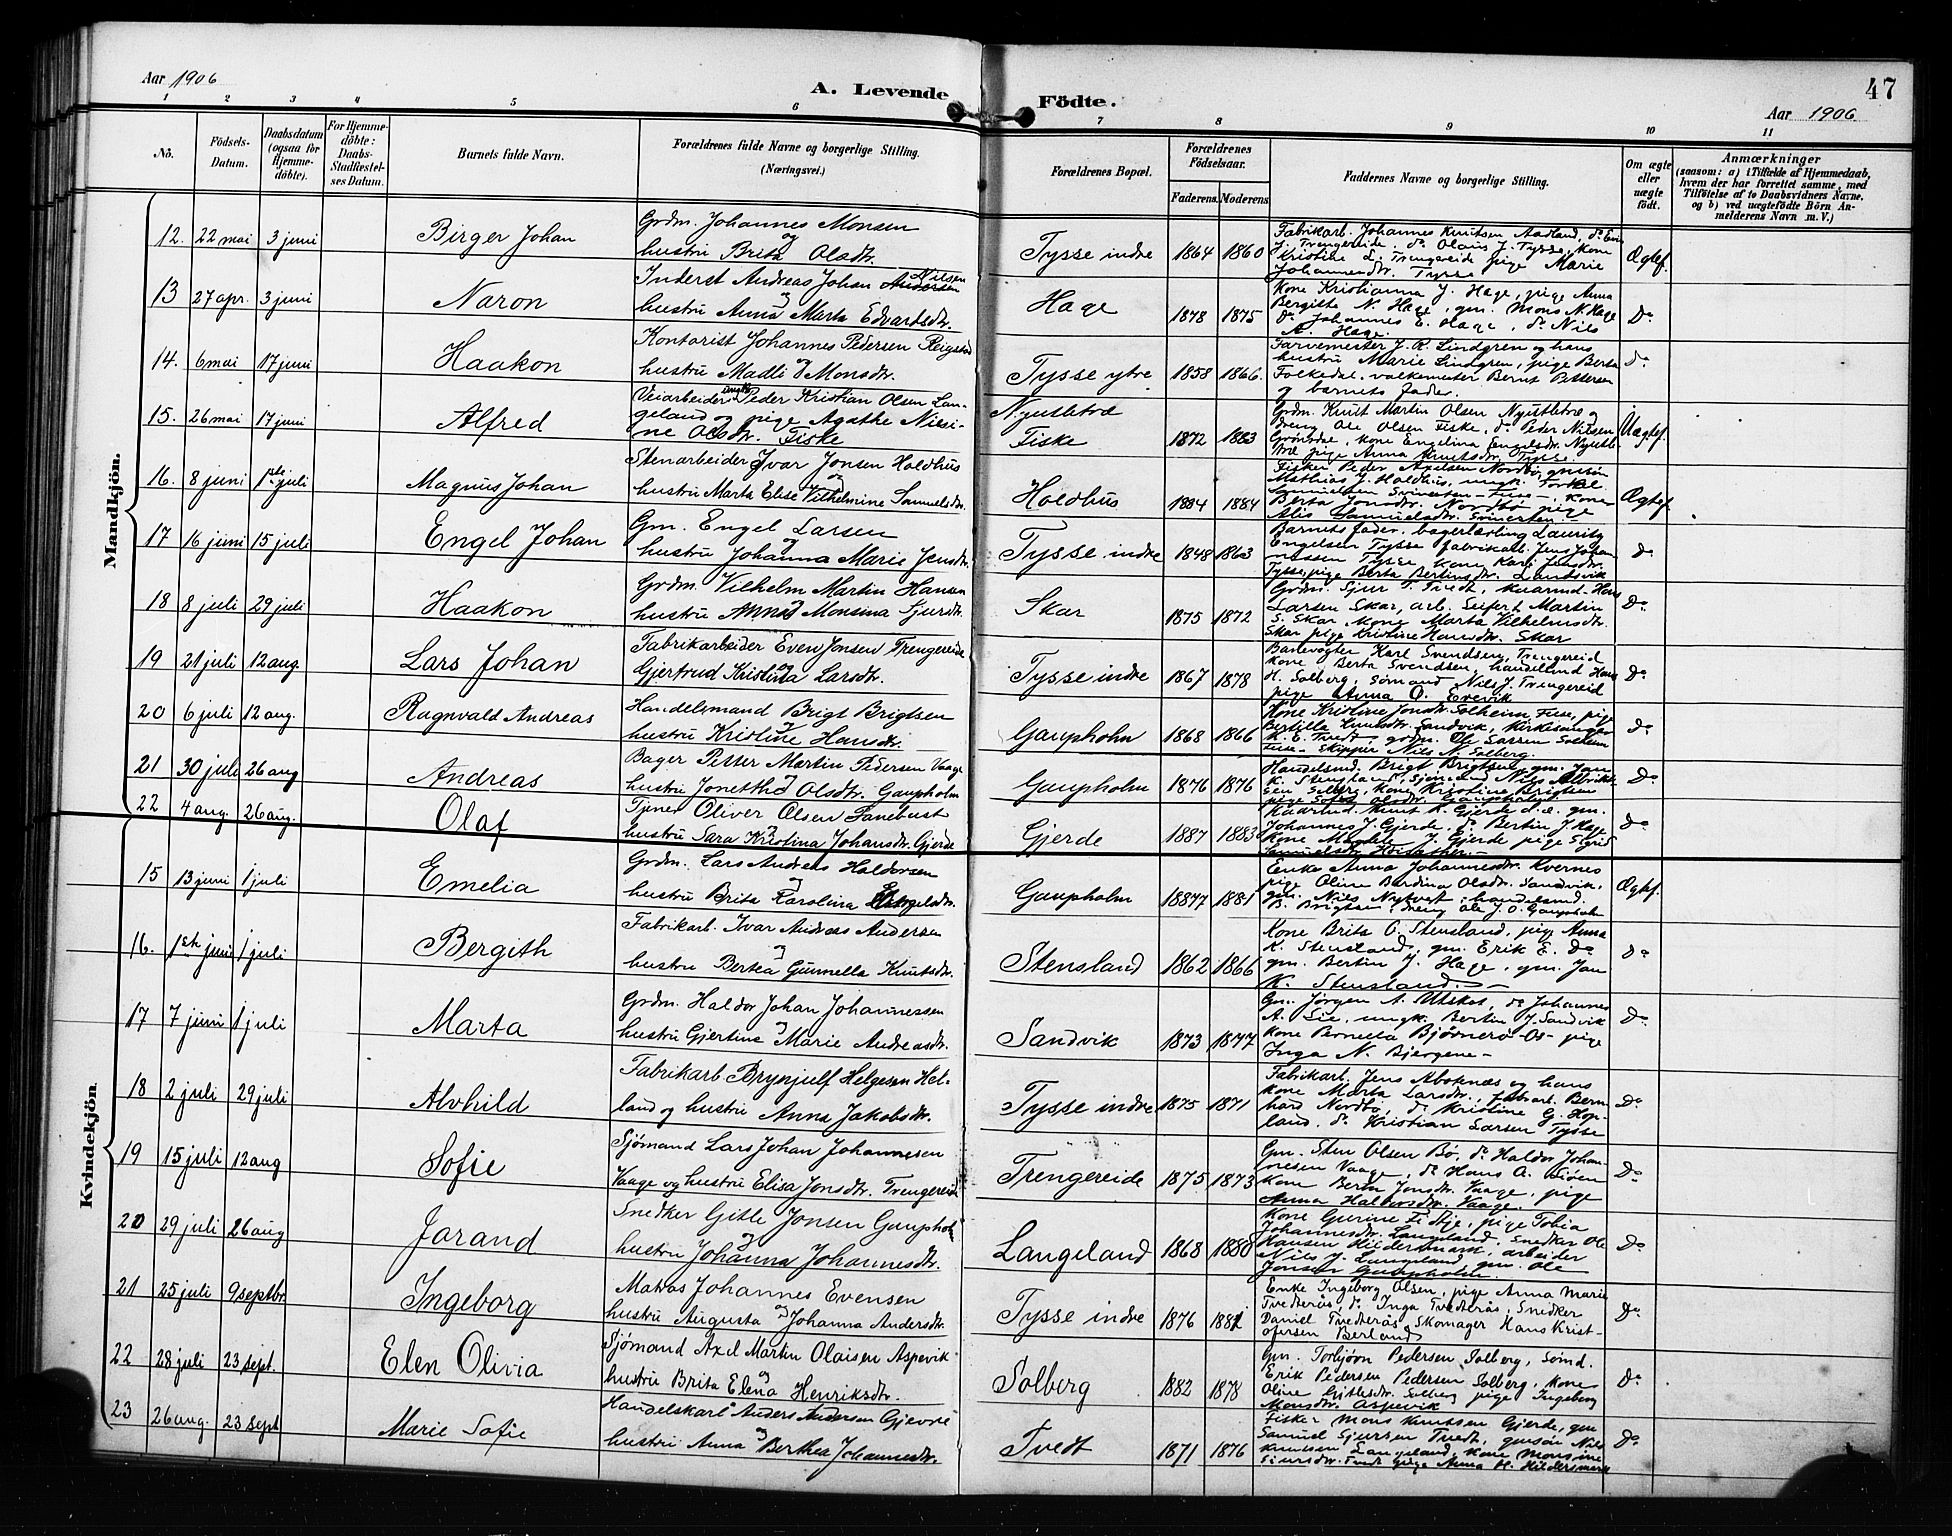 Aar 1906
A. Levende Födte.
47
Aar 1906
1 2 3 4 5 6 7 8 9 10 11
No.
Födsels-Datum.
Daabsdatum (ogsaa for Hjemme-döbte).
For Hjemme-döbte: Daabs-Stadfæstel-ses Datum.
Barnets fulde Navn.
Forældrenes fulde Navne og borgerlige Stilling.
(Næringsvei.)
Forældrenes Bopæl.
Forældrenes Födselsaar.
Faderens. Moderens.
Faddernes Navne og borgerlige Stilling.
Om ægte eller uægte födt.
Anmærkninger
(saasom: a) i Tilfælde af Hjemmedaab, hvem der har forrettet samme, med Tilföielse af to Daabsvidners Navne, og b) ved uægtefödte Börn Anmelderens Navn m. V.)
Mandkjön.
12. 22 mai 3 juni Birger Johan
Grdm. Johannes Monsen
og
hustru Brita Olsdtr.
Tysse indre 1864 1860
Fabrikarb. Johannes Knutsen Aadland, do Even
J. Trengereide, do Olaus J. Tysse, kone
Kristine L. Trengereide pige Marie
Johannesdtr. Tysse
Ægtef.
13 27 apr. 3 juni Naron
Inderst Andreas Johan Andersen Nilsen
hustru Anna Marta Edvartsdtr.
Hage 1878 1875
Kone Kristianna J. Hage, pige Anna
Bergitte N. Hage, gm. Mons N. Hage
do Johannes E. Hage, do Nils
A. Hage.
Do
14. 6 mai 17 juni Haakon
Kontorist Johannes Pedersen Reigstad
hustru Madli Monsdtr.
Tysse ytre 1858 1866.
Farvemester J. K. Lindgren og hans
hustru Marie Lindgren, pige Berta
Folkedal, valkemester Bernt Pettersen
og barnets fader.
do
15. 26 mai 17 juni Alfred
Veiarbeider ungk. Peder Kristian Olsen Lan-
geland og pige Agathe Nilsi-
ne Olsdtr. Fiske
Nyustletræ
Fiske 1872 1883
Grdm. Knut Martin Olsen Nyustletræ og
dreng Ole Olsen Fiske, do Peder Nilsen
Grönsdal, kone Engelina Engelsdtr. Nyustle-
træ pige Anna Knutsdtr. Tysse.
Uægtef.
16. 8 juni 1ste juli Magnus Johan
Stenarbeider Ivar Jonsen Holdhus
og
hustru Marta Elise Vilhelmine Samuelsdtr.
Holdhus 1884 1884
Fisker Peder Axelsen Nordbö, gmsön
Mathias J. Holdhus, ungk. Torkel
Berta Jonsdtr. Nordbö pige
Alis Samuelsdtr.
Ægtef.
17 16 juni 15 juli Engel Johan
Gm. Engel Larsen
hustru Johanna Marie Jensdtr.
Tysse indre 1848 1863
Barnets fader, bagerlærling Lauritz
Engelsen Tysse fabrikarb. Jens Johan-
nessen Tysse kone Kari Jensdtr.
Tysse, pige Berta Bertinsdtr. Landsvik
do
18 8 juli 29 juli Haakon
Grdm. Vilhelm Martin Hansen
hustru Anna Monsina Sjursdtr.
Skar 1875 1872
Grdm. Sjur T. Tvedt, kaarmd. Hans
Larsen Skar, arb. Seifert Martin
S. Skar, kone Marta Vilhelmsdtr.
Skar pige Kristine Hansdtr. Skar
Do
19 21 juli 12 aug. Lars Johan
Fabrikarbeider Even Jonsen Trengereide
Gjertrud Kristina Larsdtr.
Tysse indre 1867 1878
Karl Svendsen, Trengereid
kone Berta Svendsen, handelsmd Hans
H. Solberg, sömand Nils J. Trengereid
pige Anna O. Evevik
Do
20 6 juli 12 aug. Ragnvald Andreas
Handelsmand Brigt Brigtsen
hustru Kristine Hansdtr.
Gaupholm 1868 1866
Kone Kristine Jonsdtr. Solheim, Fuse, pige
Bertilla Knutsdtr. Sandvik, kirkesanger
K. E. Tvedt, grdm. Ole Larsen Solheim
Fuse - Skipper Nils N. Solberg
Do
21 30 juli 26 aug Andreas
Bager Petter Martin Pedersen Vaage
hustru Jonettha Olsdtr. Gaupholm
Gaupholm 1876 1876
Handelsmd. Brigt Brigtsen, gm. Jan
K. Stensland, Sjömand Nils Albrikt-
sen Solberg, kone Kristine Brigtsen
pige Sofie Olsdtr. Gaupholm
Do
22 4 aug. 26 aug. Olaf
Tjener Oliver Olsen Fanebust
hustru Sara Kristina Johansdtr. Gjerde
Gjerde 1887 1883
Kaarmd. Knut K. Gjerde d.e. gm.
Johannes J. Gjerde, do Bertin J. Hage
kone Magdela J. Gjerde pige Sigrid
Do
Kvindekjön.
15 13 juni 1 juli Emelia
Grdm. Lars Andreas Haldorsen
hustru Brita Karolina Engelsdtr.
Gaupholm 18877 1881
Enke Anna Johannesdtr. Kvernes
pige Oline Bardina Olsdtr. Sandvik,
gm. Nils Nytvet, handelsmd.
B. Brigtsen, dreng Ole J. O. Gaupholm
Ægtef.
16. 1ste juni 1 juli Bergith
Fabrikarb. Ivar Andreas Andersen
hustru Bertea Gunnella Knutsdtr.
Stensland 1862 1866
Kone Brita O. Stensland, pige Anna
K. Stensland, gm. Erik E. do
gm. Bertin J. Hage, gm. Jan
K. Stensland.
Do
17 7 juni 1 juli Marta
Grdm. Haldor Johan Johannessen
hustru Gjertine Marie Andreasdtr.
Sandvik 1873 1877
Gm. Jörgen A. Utskot, do Johannes
A. Lie, ungk. Bertin J. Sandvik
kone Pernella Björnerö Os - pige
Inga N. Bjergene -
Do
18 2 juli 29 juli Alvhild
Fabrikarb Brynjulf Helgesen Hel-
land og hustru Anna Jakobsdtr.
Tysse indre 1875 1871
Fabrikarb. Jens Aboknæs og hans
kone Marta Larsdtr., fabrikarb. Bern-
hard Nordbö, do Kristine G. Hop-
land, do Kristian Larsen Tysse
Do
19 15 juli 12 aug Sofie
Sjömand Lars Johan Johannesen
Vaage og hustru Elisa Jonsdtr. Trengereide
Trengereide 1875 1873
Gm. Sten Olsen Bö, do Haldor Johan-
nesen Vaage, do Hans A. Moen
kone Berta Jonsdtr. Vaage, pige
Anna Halvorsdtr. Vaage.
Do
20 29 juli 26 aug Jorand
Snedker Gitle Jonsen Gaupholm
hustru Johanna Johannesdtr.
Langeland 1868 1880
Kone Gurine Fiskje, pige Tobia
Johannesdtr. Langeland, Snedker Ole
Hansen Hildersmark, arbeider
Nils J. Langeland, gm. Ole
Jonsen Gaupholm.
Do
21 25 juli 9 septbr. Ingeborg
Matros Johannes Evensen
hustru Augusta og Johanna Andersdtr.
Tysse indre 1876 1881
Enke Ingeborg Olsen, pige Anna Marie
Tvedterås, do Inga Tvedterås, Snedker
Daniel Tvedterås Skomager Hans Krist-
ofersen Berland
Do
22 28 juli 23 sept. Elen Olivia
Sjömand Axel Martin Olaisen Aspevik
hustru Brita Elena Henriksdtr.
Solberg 1882 1878
Gm. Torbjörn Pedersen Solberg, Sömd.
Erik Pedersen Pedersen Solberg, kone
Oline Gitlesdtr. Solberg pige Ingeborg
Monsdtr. Aspevik
Do
23 26 aug. 23 sept Marie Sofie
Handelskarl Anders Andersen Gjevre
hustru Anna Berthea Johannesdtr.
Tvedt 1871 1876
Fisker Mons Knutsen Gjerde, gm
Samuel Sjursen Tvedt, gmsön Nils
Knutsen Langeland, kone Monsine
Sjursdtr. Tvedt pige Anna H. Hildersmark
Do